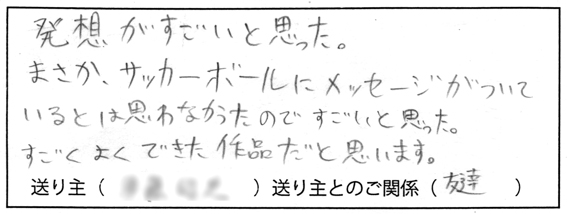 発想がすごいと思った。
まさか、サッカーボールにメッセージがついて
いるとは思わなかったのですごいと思った。
すごくよくできた作品だと思います。
送り主（　）送り主とのご関係（友達　）